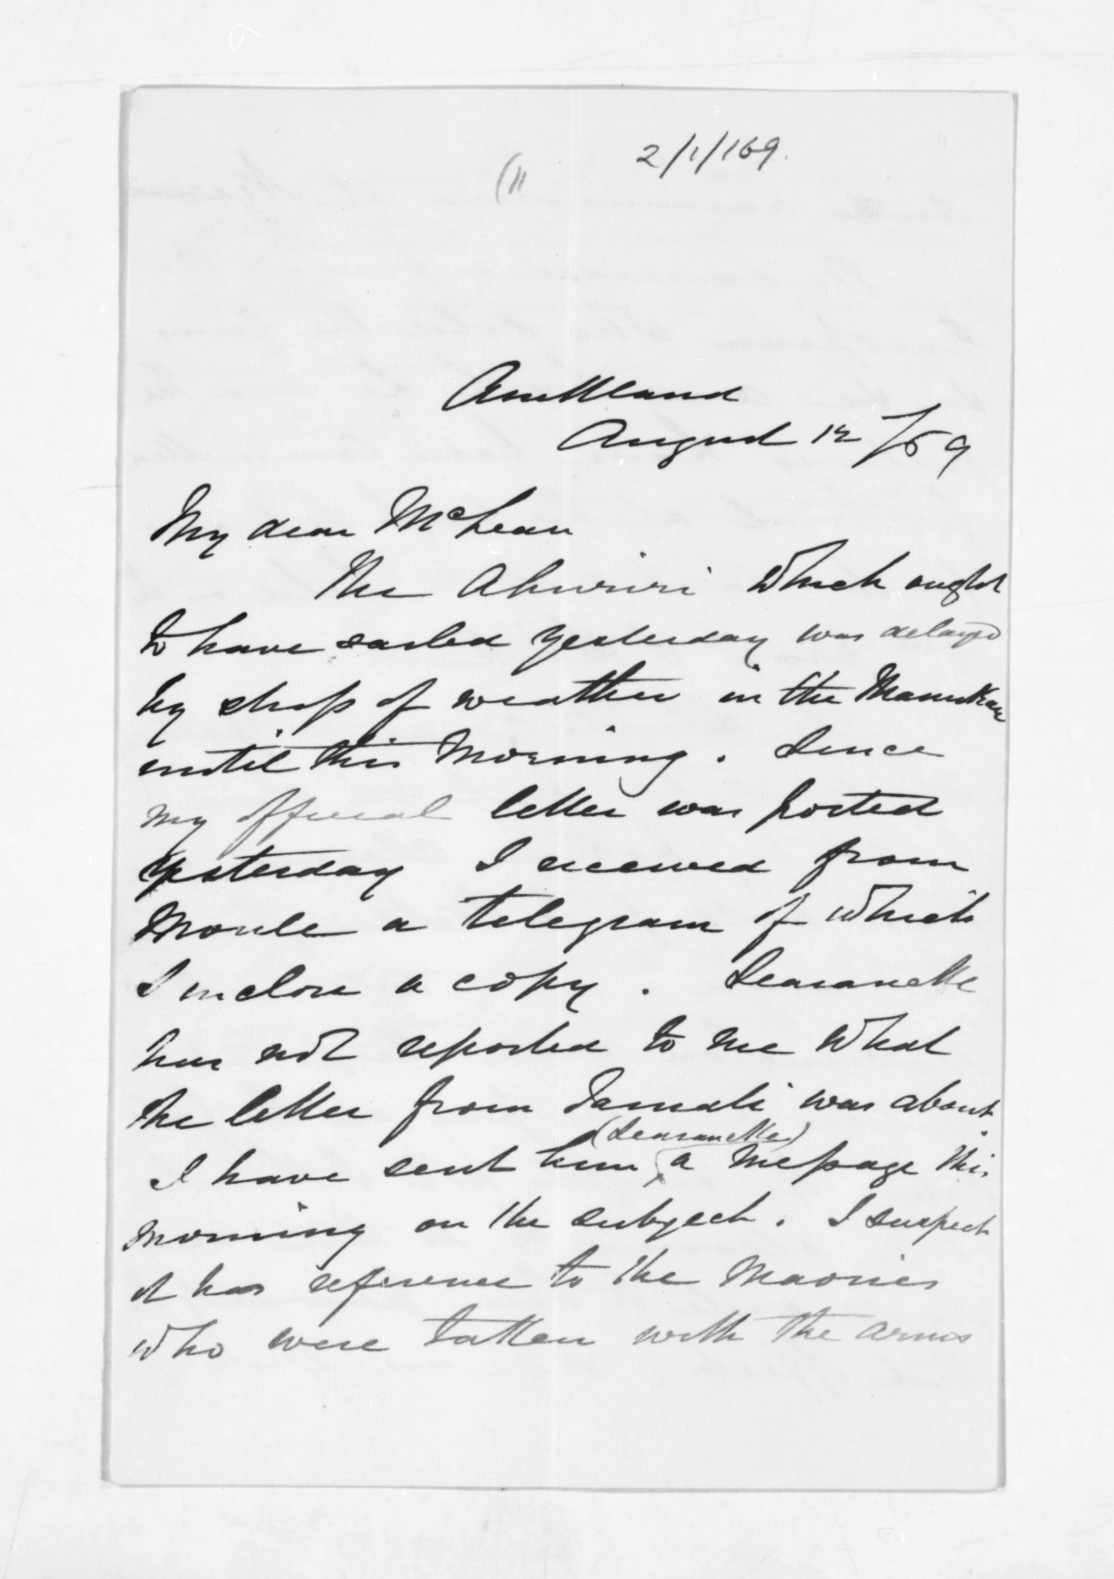 2/1/169.
(11
Auckland
August 12/69
My dear McLean
The Ahuriri which ought
to have sailed yesterday was delayed
by stress of weather in the Manukau
until this morning. Since
my official letter was posted
yesterday I received from
Moule a telegram of which
I enclose a copy.
has not reported to me what
the letter from Tamati was about
I have sent him a message this
morning on the subject. I suspect
it has reference to the Maories
who were taken with the arms